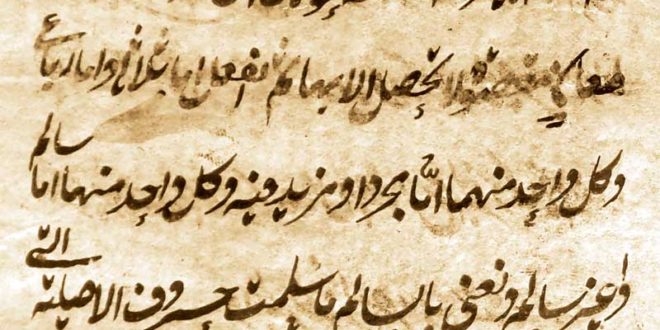 لمعان مقصودة لا تحصل الا بها ثم الفعل اما ثلاثي واما رباعي
وكل واحد منهما امّا مجرد او مزيد فيه وكل واحد منهما اما سالم
او غير سالم ونعني بالسالم ما سلمت حروف الاصلية التي